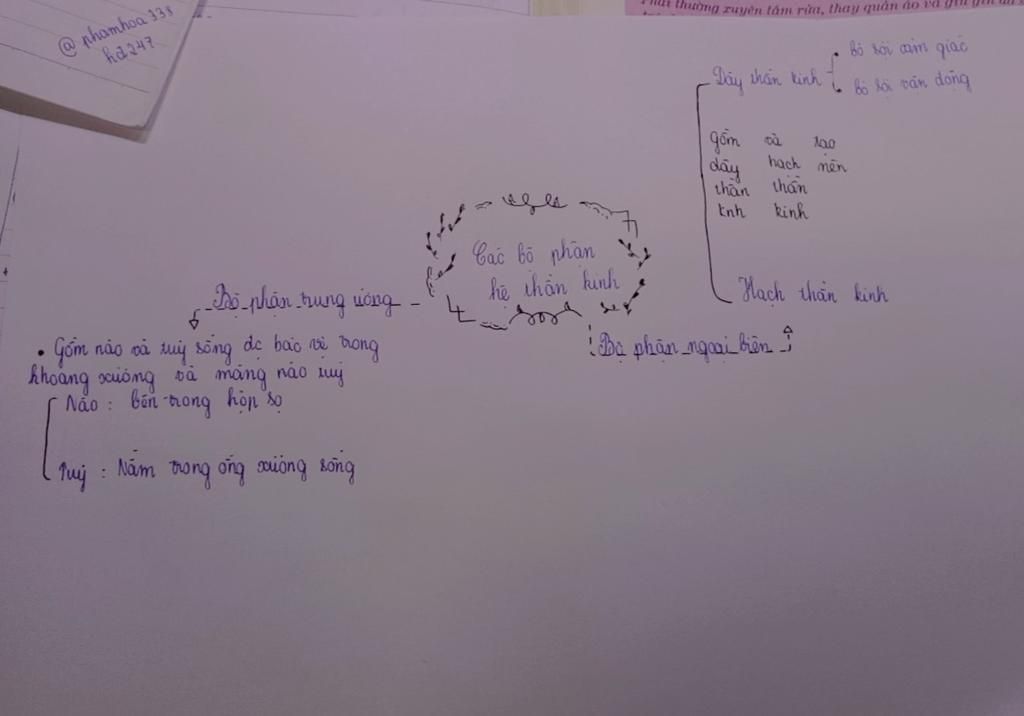 @ phamhoa338
hd247
thường xuyên tắm rửa, thay quần áo và giữ gìn
Các bộ phận
hệ thần kinh
Bộ phận trung ương
• Gồm não và tuỷ sống đc bảo vệ trong
khoang xương và màng não tuỷ
Não : bên trong hộp sọ
Tuỷ : Nằm trong ống xương sống
Bộ phận ngoại biên
Dây thần kinh
• bó sợi cảm giác
• bó sợi vận động
gồm và tạo
dây hạch nên
thần thần
knh kinh
Hạch thần kinh